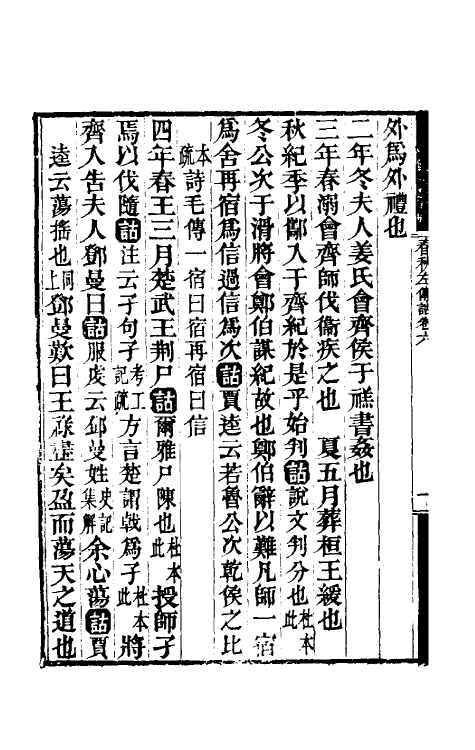 春秋左傳詁卷六
外爲外禮也
二年冬夫人姜氏會齊侯于禚書姦也
三年春溺會齊師伐衞疾之也　夏五月葬桓王緩也
秋紀季以酅入于齊紀於是乎始判詁說文判分也杜本此
冬公次于滑將會鄭伯謀紀故也鄭伯辭以難凡師一宿
爲舍再宿爲信過信爲次詁賈逵云若魯公次乾侯之比
本疏詩毛傳一宿曰宿再宿曰信
四年春王三月楚武王荆尸詁爾雅尸陳也杜本此授師孑
焉以伐隨詁注云孑句孑考工記疏方言楚謂戟爲孑杜本此將
齊入告夫人鄧曼曰詁服虔云鄧曼姓史記集解余心蕩詁賈
逵云蕩搖也同上鄧曼歎曰王祿盡矣盈而蕩天之道也